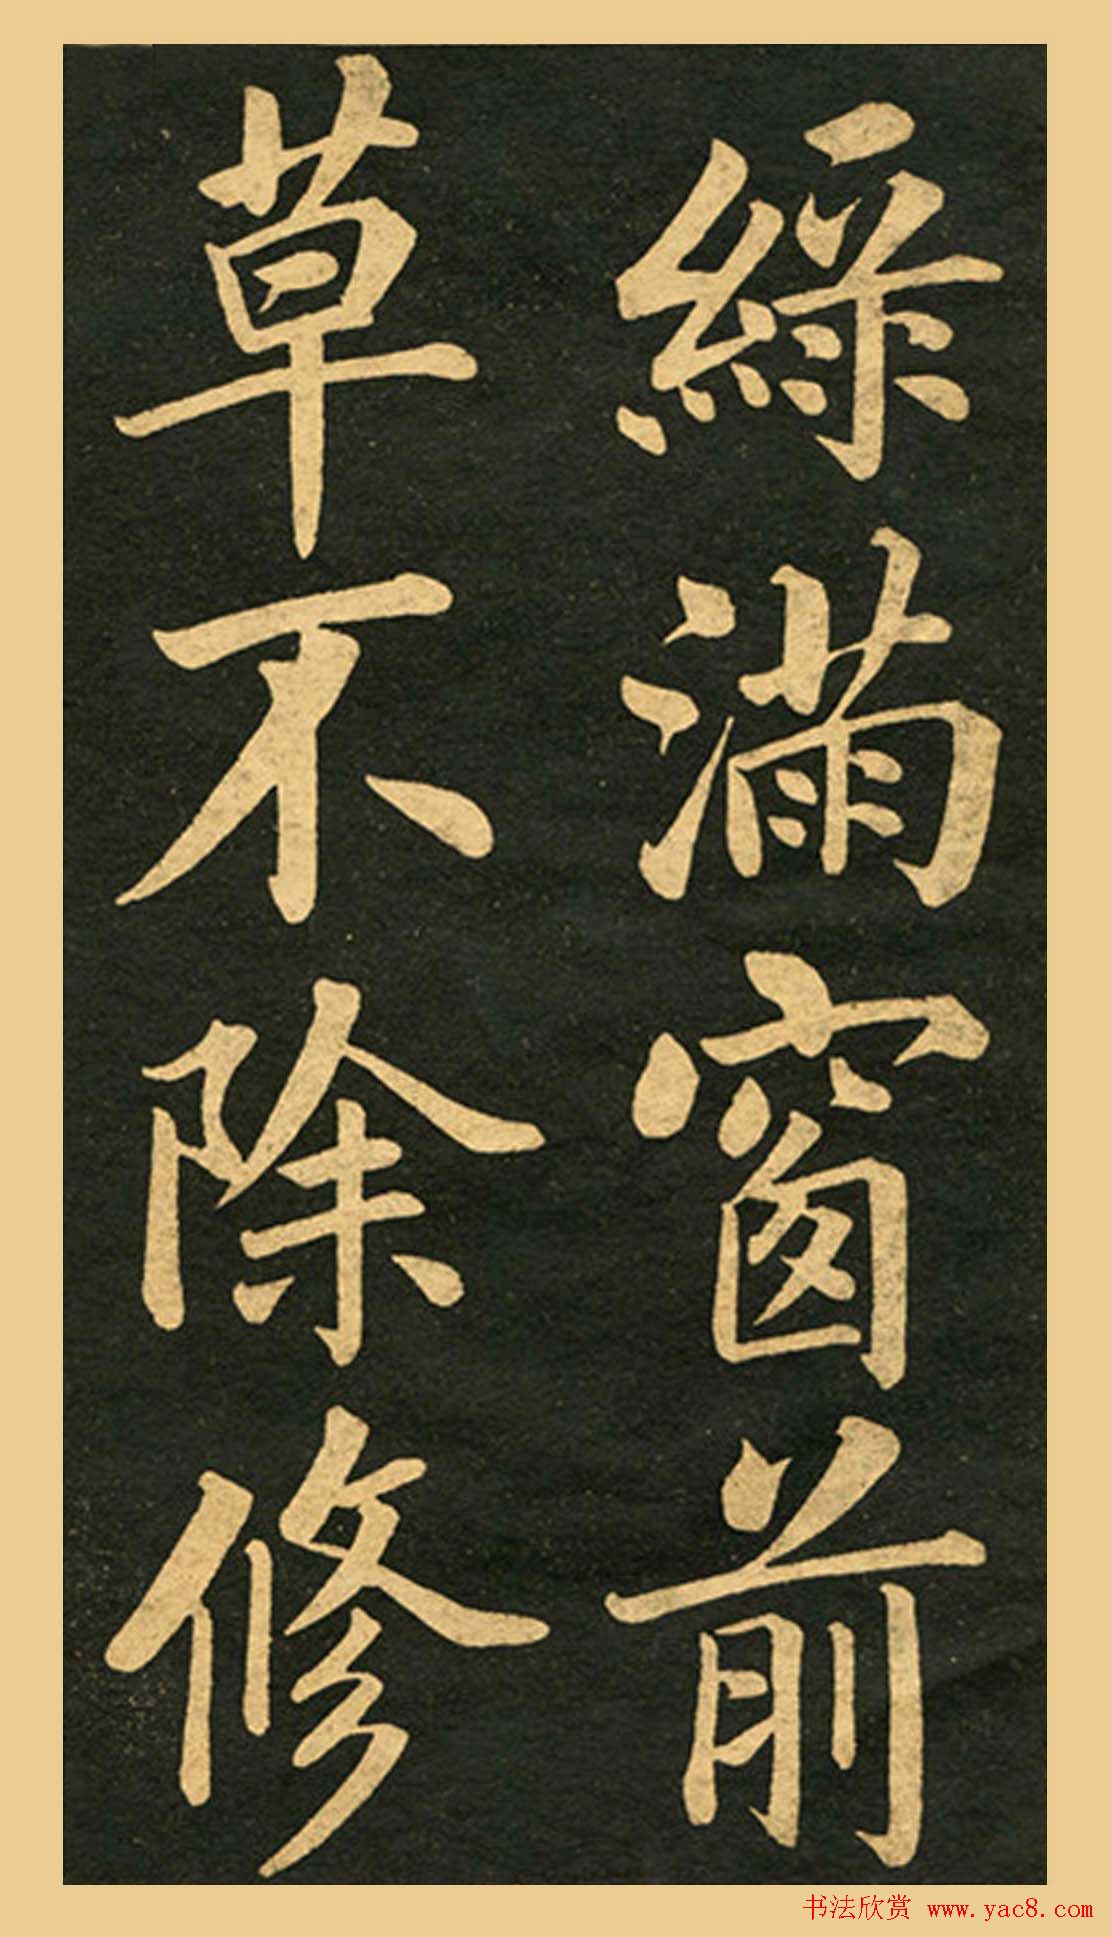 綠滿窗前
草不除修
书法欣赏 www.yac8.com